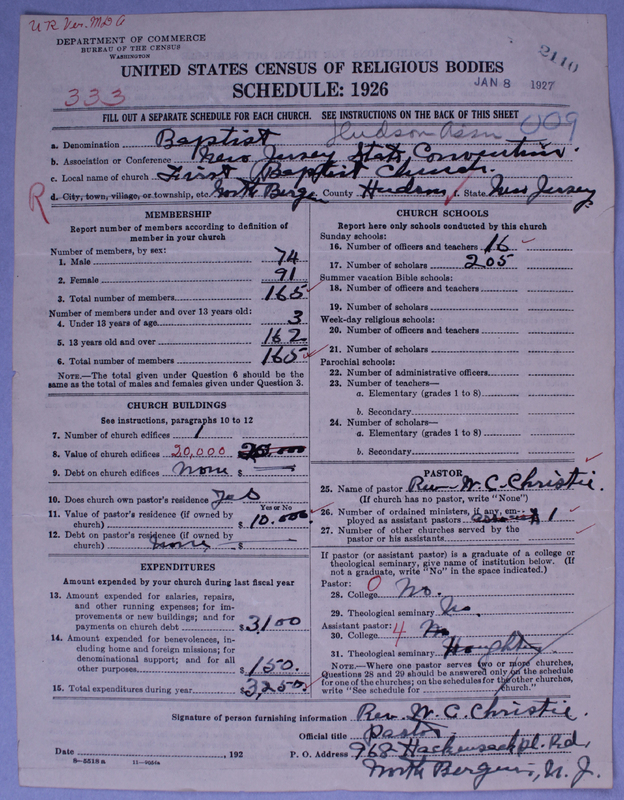 U R Ver. MDG
DEPARTMENT OF COMMERCE
BUREAU OF THE CENSUS
WASHINGTON
2110
UNITED STATES CENSUS OF RELIGIOUS BODIES
SCHEDULE: 1926
JAN 8 1927
333
FILL OUT A SEPARATE SCHEDULE FOR EACH CHURCH. SEE INSTRUCTIONS ON THE BACK OF THIS SHEET
Hudson Assn 009
a. Denomination Baptist
b. Association or Conference New Jersey State Convention.
c. Local name of church First Baptist Church.
R
d. City, town, village, or township, etc. North Bergen County Hudson State New Jersey
MEMBERSHIP
Report number of members according to definition of
member in your church
Number of members, by sex:
1. Male 74
2. Female 91
3. Total number of members 165
Number of members under and over 13 years old:
4. Under 13 years of age 3
5. 13 years old and over 162
6. Total number of members 165
NOTE.—The total given under Question 6 should be the
same as the total of males and females given under Question 3.
CHURCH BUILDINGS
See instructions, paragraphs 10 to 12
7. Number of church edifices 1
8. Value of church edifices 20,000
9. Debt on church edifices None $
10. Does church own pastor's residence Yes
Yes or No
11. Value of pastor's residence (if owned by
church) $ 10.000
12. Debt on pastor's residence (if owned by
church) None $
EXPENDITURES
Amount expended by your church during last fiscal year
13. Amount expended for salaries, repairs,
and other running expenses; for im-
provements or new buildings; and for
payments on church debt $ 3,100
14. Amount expended for benevolences, in-
cluding home and foreign missions; for
denominational support; and for all
other purposes $ 150.
15. Total expenditures during year $ 3,250.
CHURCH SCHOOLS
Report here only schools conducted by this church
Sunday schools:
16. Number of officers and teachers 16
17. Number of scholars 205
Summer vacation Bible schools:
18. Number of officers and teachers
19. Number of scholars
Week-day religious schools:
20. Number of officers and teachers
21. Number of scholars
Parochial schools:
22. Number of administrative officers
23. Number of teachers—
a. Elementary (grades 1 to 8)
b. Secondary
24. Number of scholars—
a. Elementary (grades 1 to 8)
b. Secondary
PASTOR
25. Name of pastor Rev. W. C. Christie.
(If church has no pastor, write "None")
26. Number of ordained ministers, if any, em-
ployed as assistant pastors 1
27. Number of other churches served by the
pastor or his assistants
If pastor (or assistant pastor) is a graduate of a college or
theological seminary, give name of institution below. (If
not a graduate, write "No" in the space indicated.)
Pastor: 0
28. College No.
29. Theological seminary No
Assistant pastor: 4
30. College No
31. Theological seminary Houghton
NOTE.—Where one pastor serves two or more churches,
Questions 28 and 29 should be answered only on the schedule
for one of the churches; on the schedules for the other churches,
write "See schedule for church."
Signature of person furnishing information Rev. W. C. Christie.
Official title Pastor
Date , 192 P. O. Address 968 Hackensack pl. Rd.
8—5518 a
North Bergen, N. J.